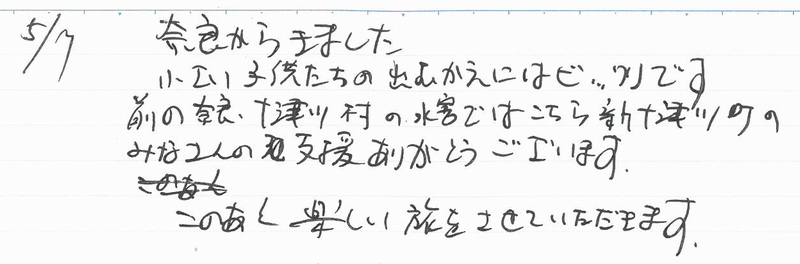 5/7 奈良からきました
小さい子供たちの出むかえにはビックリです
前の奈良、十津川村の水害ではこちら新十津川町の
みなさんの支援ありがとうございます。
このあと
このあと楽しい旅をさせていただきます。